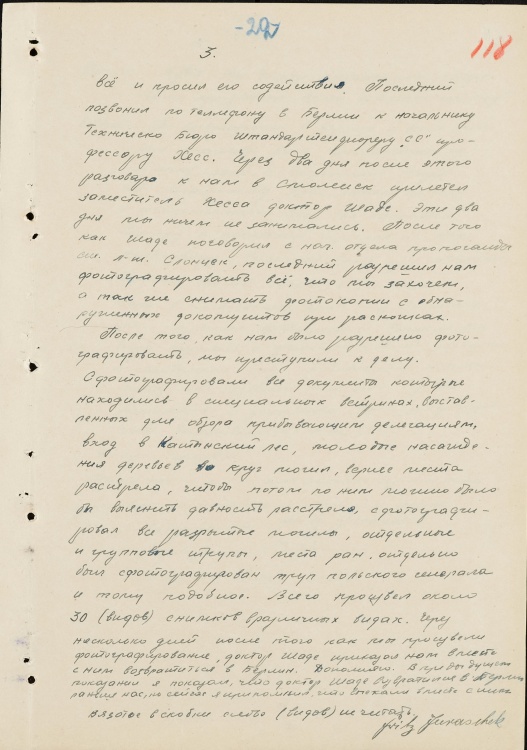 -297
118
3.
всё и просил его содействия. Последний
позвонил по телефону в Берлин к начальнику
Техническо Бюро штандартенфюреру "СС" про-
фессору Хесс. Через два дня после этого
разговора к нам в Смоленск прилетел
заместитель Хесса доктор Шаде. Эти два
дня мы ничем не занимались. После того
как Шаде поговорил с нач. отдела пропаганды
ст. л-т. Слончек, последний разрешил нам
фотографировать всё, что мы захочем,
а так же снимать фотокопии с обна-
руженных документов при раскопках.
После того, как нам было разрешено фото-
графировать, мы преступили к делу.
Сфотографировали все документы которые
находились в специальных ветринах, выстав-
ленных для обзора прибывающим делегациям,
вход в Катынский лес, молодые насажде-
ния деревьев во круг могил, места
расстрела, чтобы потом по ним можно было
бы выяснить давность расстрела, сфотографи-
ровал все разрытые могилы, отдельные
и групповые трупы, места ран, отдельно
был сфотографирован труп польского генерала
и тому подобное. Всего произвел около
30 (видов) снимков в различных видах. Через
несколько дней после того как мы произвели
фотографирование, доктор Шаде приказал нам вместе
с ним возвратиться в Берлин. Дополняю. В предыдущих
показаниях я показал, что доктор Шаде возвратился в Берлин
раньше нас, но сейчас я припомнил, что выехали вместе с ним.
Взятое в скобки слово (видов) не читать.
Fritz